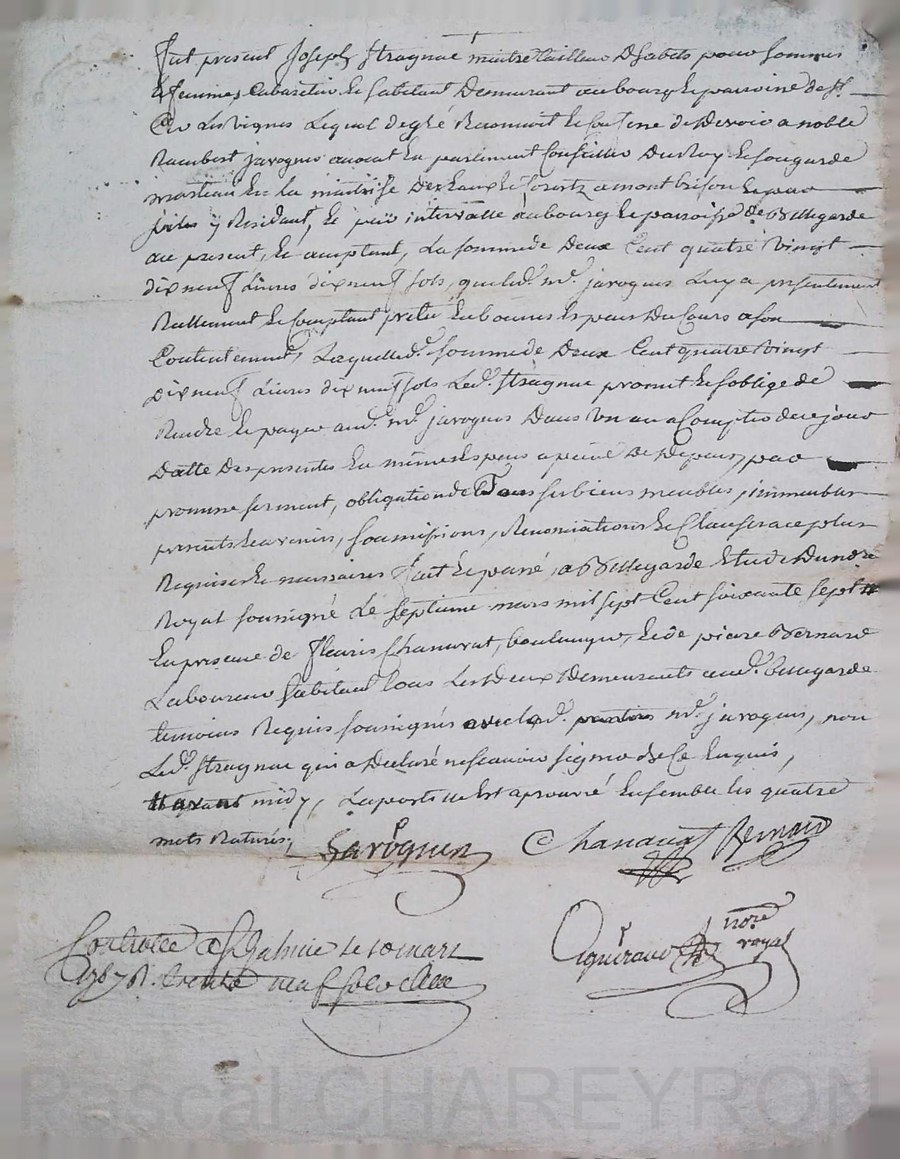 Fut present Joseph Stragnac maitre tailleur Dhabits pour hommes
& femmes, Cabaretier et habitant Demeurant au bourg et parroisse de St.
Cir Les vignes Lequel de gré Reconnoit et Confesse de Devoir a noble
Rambert javogues avocat en parlement Conseiller Du Roy et son garde
marteau En La maitrise Des Eaux et forets a montbrison le pour
y Residant, Et par intervalle au bourg et parroisse de Bellegarde
au present, Et acceptant, La somme de Deux Cent quatre Vingt
dix neuf Livres dix neuf sols, que led. mr. javogues Luy a presentement
Reellement et Comptant preté En bonnes Especes Du Cours a son
Contentement, Laquelle d. somme de Deux Cent quatre Vingt
Dix neuf Livres dix neuf sols Led. Stragnac promet et s'oblige de
Rendre Et payer aud. mr. javogues Dans Un an a Compter de ce jour
Datte Des presentes En mêmes Especes a peine De Depens, par
promesse serment, obligation de Tous ses biens meubles, immeubles
presents et avenir, soumissions, Renonciations et Clauses a ce plus
Requises et necessaires fait et passé, a Bellegarde Etude Du nore
Royal sousigné Le septieme mars mil sept Cent soixante sept
En presence de fleuris Chanavat, boulanger, et de piere Bernard
Laboureur habitant tous Les Deux Demeurants aud. bellegarde
temoins Requis sousignés avec led. mr. javogues, non
Led. Stragnac qui a Declaré ne scavoir signer de Ce Enquis,
avant midy, Lapostille Est aprouvé Ensemble les quatre
mots Raturés;
Javoguen Chanavat Bernard
Controllé a St Galmier le 10 mars
1767 R. trente neuf sols
Aguiraud nore
royal
Pascal CHAREYRON